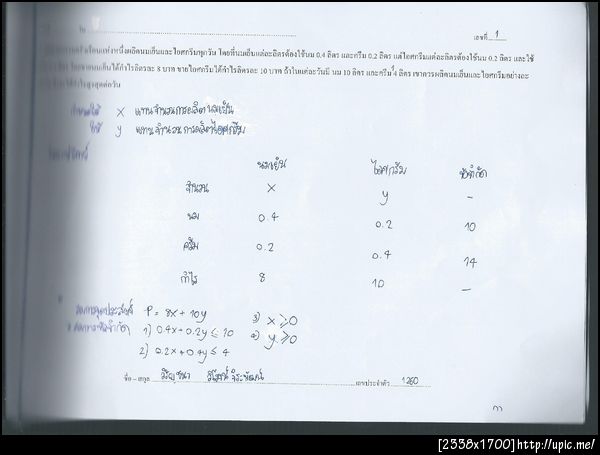 ข้อ เลขที่ 1
แห่งหนึ่งผลิตนมเย็นและไอศกรีมทุกวัน โดยที่นมเย็นแต่ละลิตรต้องใช้นม 0.4 ลิตร และครีม 0.2 ลิตร แต่ไอศกรีมแต่ละลิตรต้องใช้นม 0.2 ลิตร และใช้
นมเย็นได้กำไรลิตรละ 8 บาท ขายไอศกรีมได้กำไรลิตรละ 10 บาท ถ้าในแต่ละวันมี นม 10 ลิตร และครีม 4 ลิตร เขาควรผลิตนมเย็นและไอศกรีมอย่างละ
กำไรสูงสุดต่อวัน
กำหนดให้ x แทนจำนวนการผลิตนมเย็น
ให้ y แทนจำนวนการผลิตไอศกรีม
นมเย็น ไอศกรีม ข้อจำกัด
จำนวน x y -
นม 0.4 0.2 10
ครีม 0.2 0.4 14
กำไร 8 10 -
สมการจุดประสงค์ P = 8x + 10y 3) x ≥ 0
สมการข้อจำกัด 1) 0.4x + 0.2y ≤ 10 4) y ≥ 0
2) 0.2x + 0.4y ≤ 4
ชื่อ – สกุล เลขประจำตัว 1260
[2338x1700]http://upic.me/